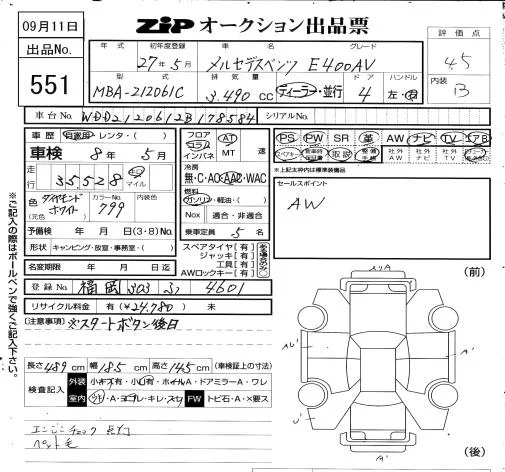 09月11日
ZIP オークション出品票
出品No.
551
年式 初年度登録 車名 グレード
27年5月 メルセデスベンツ E400AV
型式 排気量 ドア ハンドル
MBA-212061C 3.490 CC ディーラー・並行 4 左・右
評価点
4.5
内装
B
車台No. WDD2120612B178584 シリアルNo.
車歴 自家用・レンタ・( )
車検 8年 5月
走行 35,528 km マイル
色(元色) ダイヤモンドホワイト カラーNo. 799 内装色
予備検 年 月 日(3・8)No.
形状 キャンピング・放宣・事務室・( )
名変期限 年 月 日迄
フロア コラム インパネ AT MT 速
冷房 無・C・AC・AAC・WAC
燃料 ガソリン・軽油・( )
Nox 適合・非適合
乗車定員 5 名
スペアタイヤ[有]
ジャッキ[有]
工具[有]
AWロックキー[有]
ある場合のみ○
PS PW SR 革 AW ナビ TV エアB
取説 整備手帳 社外AW 社外ナビ 社外TV
*上記太枠内は標準装備品
セールスポイント
AW
登録No. 福岡 303 4601
リサイクル料金 有(¥24,780) 未
(注意事項) ※スタートボタン後日
長さ 489 cm 幅 185 cm 高さ 145 cm (車検証上の寸法)
検査記入 外装 小キズ有・小凹有・ホイルA・ドアミラーA・ワレ
室内 ・A・コゲ・キレ・スレ FW トビ石・A・X要ス
エンジンチェック点灯
ペット毛
※ご記入の際はボールペンで強くご記入下さい。
(前)
(後)